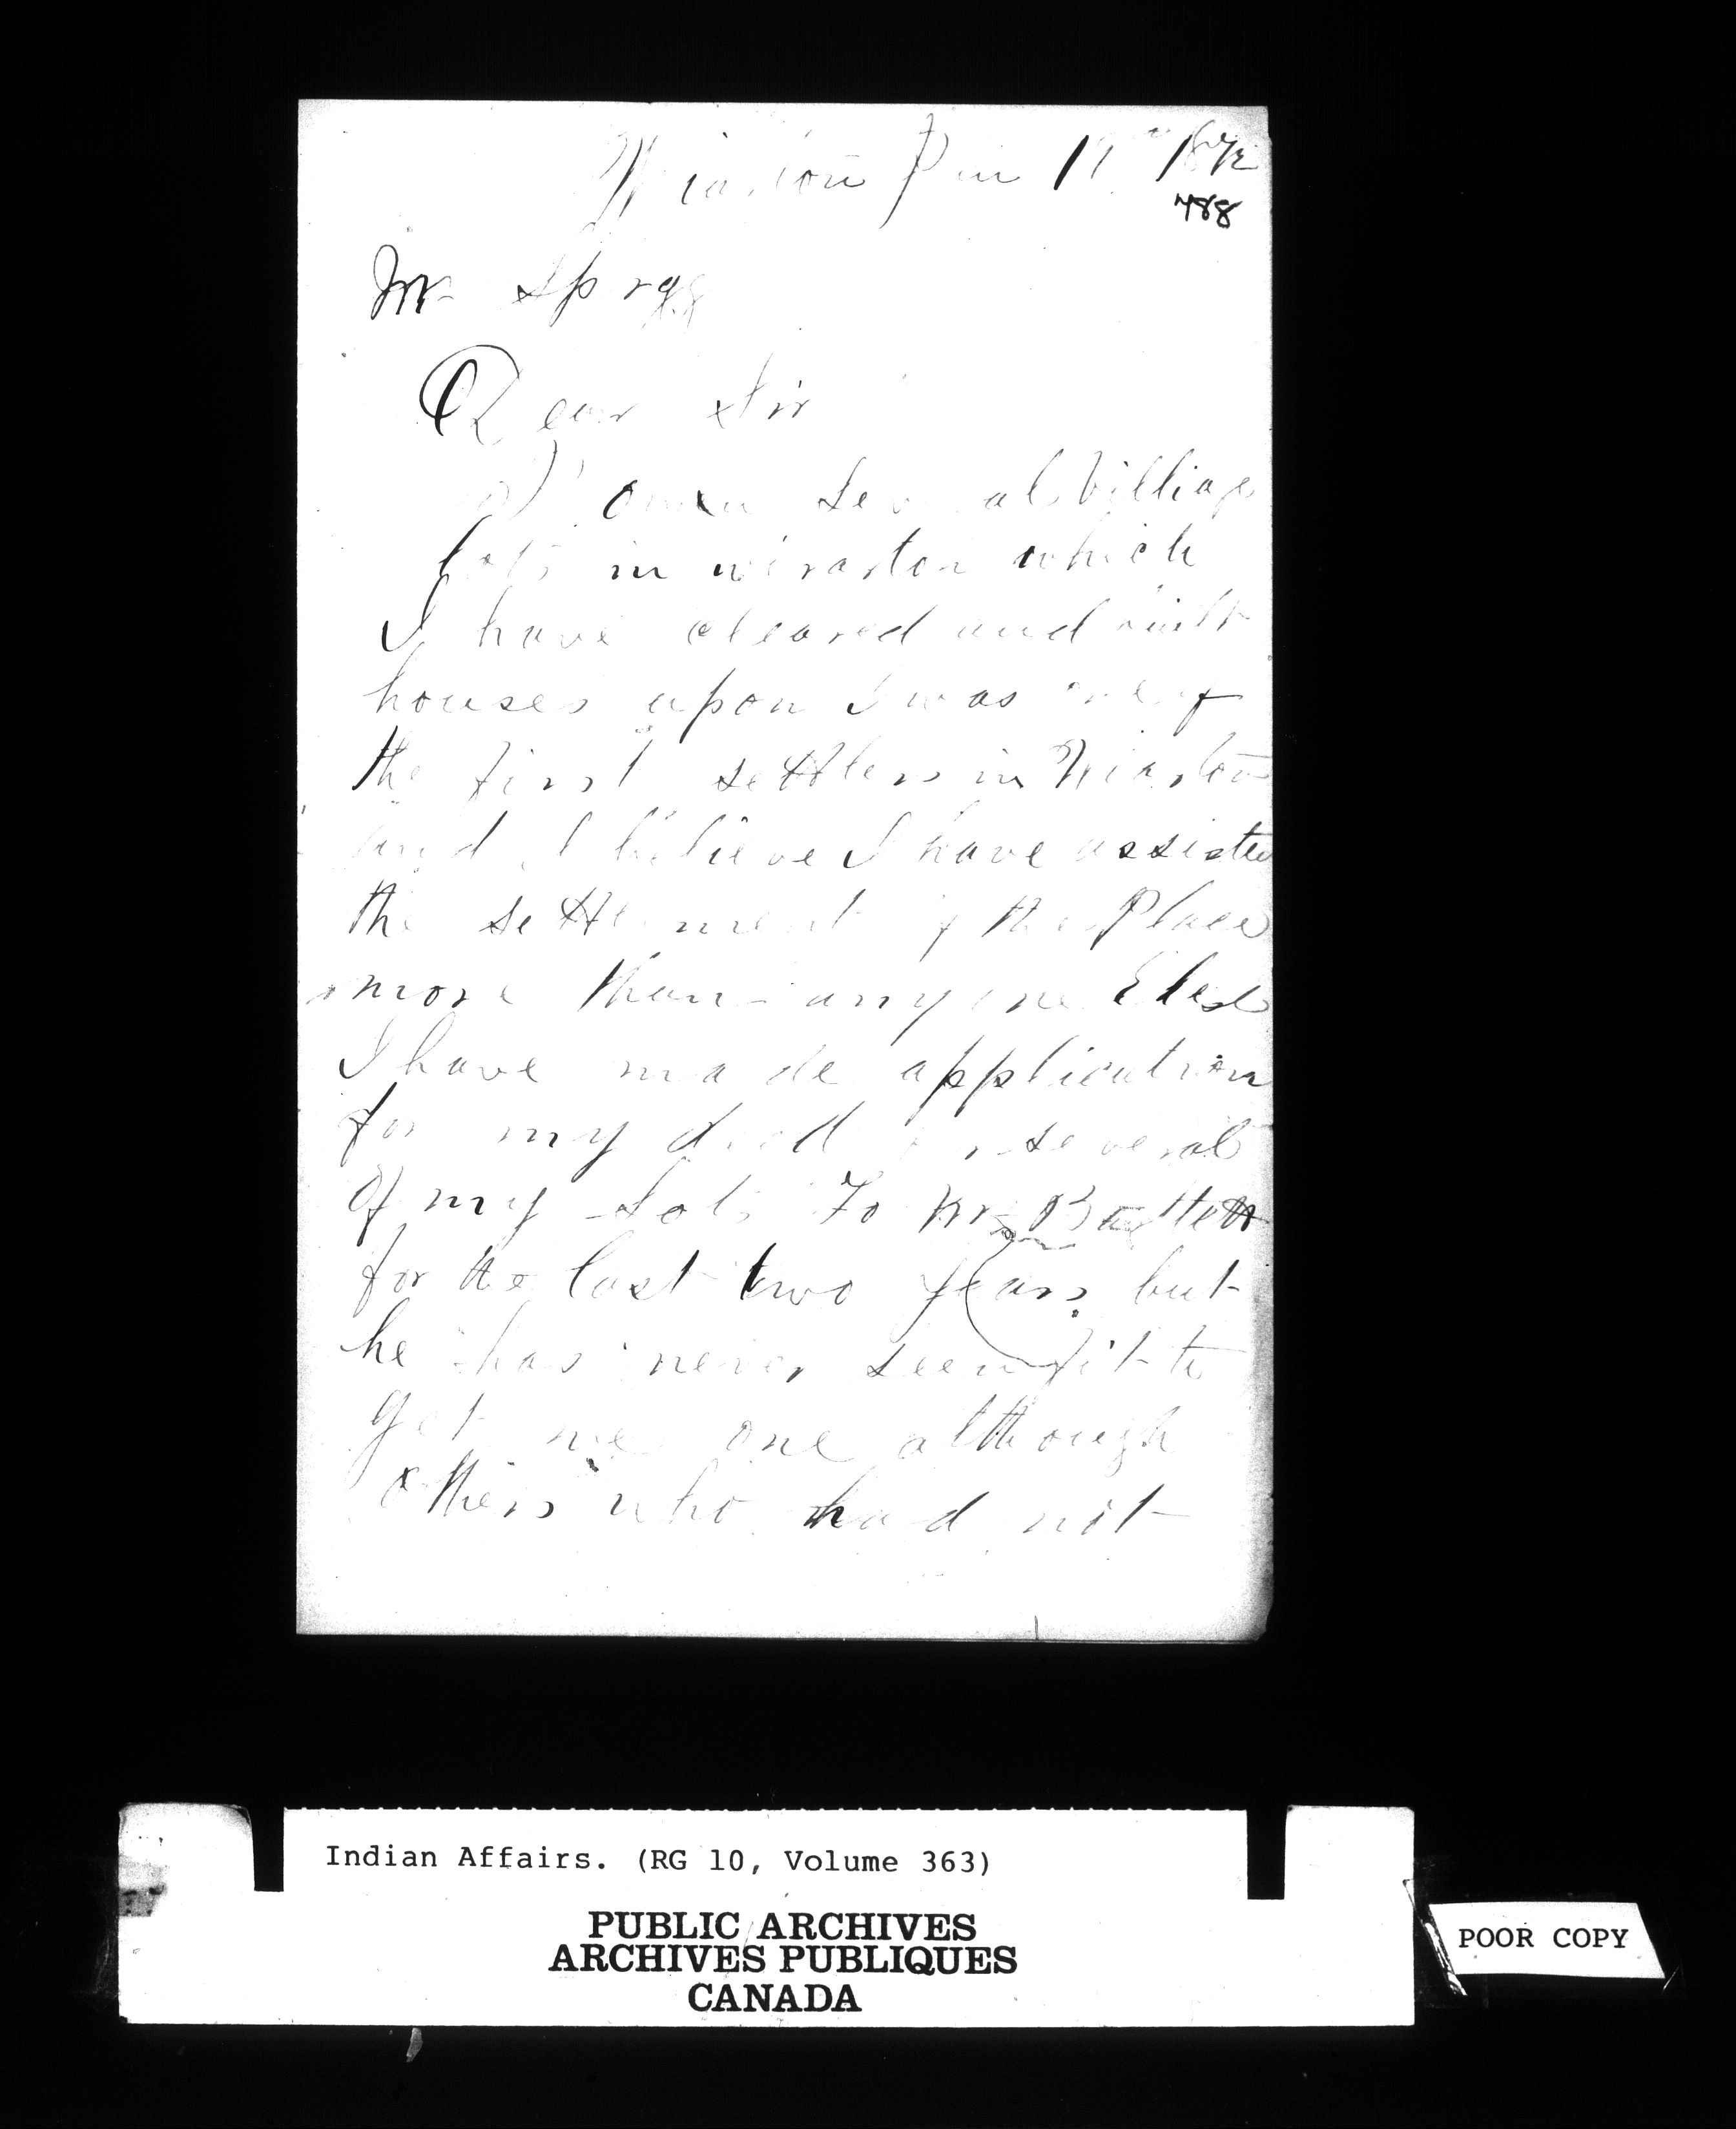 Wiarton Jun 17th 1872
488
Mr Spragg
Dear Sir
I own several Villiage
lots in wirarton which
I have cleared and built
houses upon I was one of
the first settlers in Wiarton
and I believe I have assisted
the settlement of the Place
more than any one Else
I have made application
for my deed for several
of my Lots To Mr Bartlett
for the last two years but
he has never seen fit to
get me one although
others who had not
Indian Affairs. (RG 10, Volume 363)
PUBLIC ARCHIVES
ARCHIVES PUBLIQUES
CANADA
POOR COPY